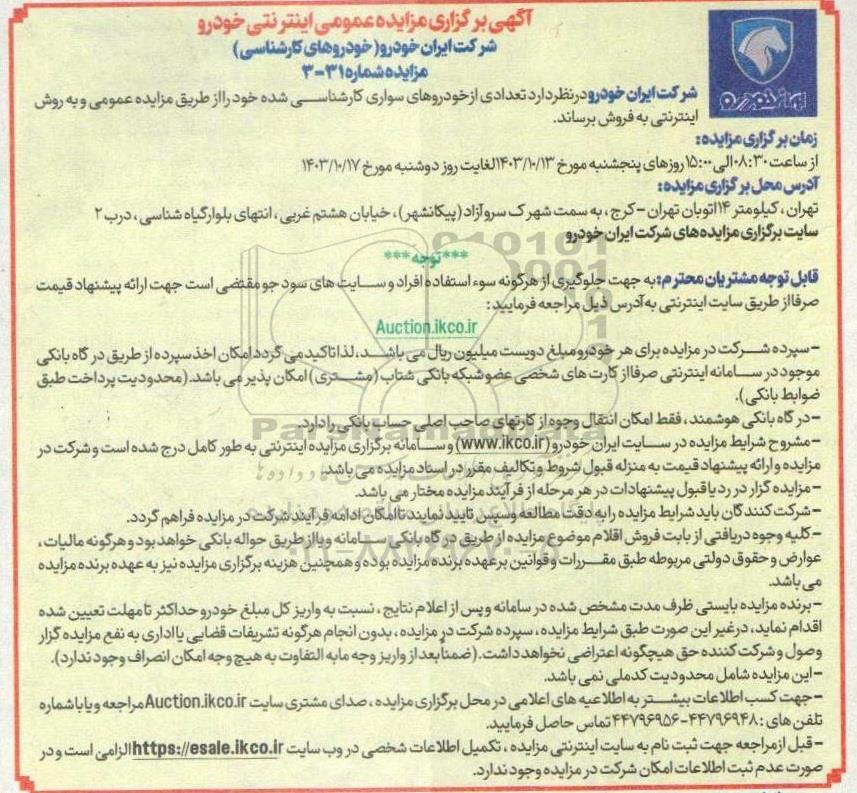 آگهی برگزاری مزایده عمومی اینترنتی خودرو
شرکت ایران خودرو (خودروهای کارشناسی)
مزایده شماره ۳۱-۳
ایران خودرو
شرکت ایران خودرو در نظر دارد تعدادی از خودروهای سواری کارشناسی شده خود را از طریق مزایده عمومی و به روش
اینترنتی به فروش برساند.
زمان برگزاری مزایده:
از ساعت ۰۸:۳۰ الی ۱۵:۰۰ روزهای پنجشنبه مورخ ۱۴۰۳/۱۰/۱۳ لغایت روز دوشنبه مورخ ۱۴۰۳/۱۰/۱۷
آدرس محل برگزاری مزایده:
تهران، کیلومتر ۱۴ اتوبان تهران - کرج، به سمت شهرک سروآزاد (پیکانشهر)، خیابان هشتم غربی، انتهای بلوار گیاه شناسی، درب ۲
سایت برگزاری مزایده های شرکت ایران خودرو
***توجه***
قابل توجه مشتریان محترم: به جهت جلوگیری از هرگونه سوء استفاده افراد و سایت های سودجو مقتضی است جهت ارائه پیشنهاد قیمت
صرفا از طریق سایت اینترنتی به آدرس ذیل مراجعه فرمایید:
Auction.ikco.ir
- سپرده شرکت در مزایده برای هر خودرو مبلغ دویست میلیون ریال می باشد، لذا تاکید می گردد امکان اخذ سپرده از طریق درگاه بانکی
موجود در سامانه اینترنتی صرفا از کارت های شخصی عضو شبکه بانکی شتاب (مشتری) امکان پذیر می باشد. (محدودیت پرداخت طبق
ضوابط بانکی).
- درگاه بانکی هوشمند، فقط امکان انتقال وجوه از کارتهای صاحب اصلی حساب بانکی را دارد.
- مشروح شرایط مزایده در سایت ایران خودرو (www.ikco.ir) و سامانه برگزاری مزایده اینترنتی به طور کامل درج شده است و شرکت در
مزایده و ارائه پیشنهاد قیمت به منزله قبول شروط و تکالیف مقرر در اسناد مزایده می باشد.
- مزایده گزار در رد یا قبول پیشنهادات در هر مرحله از فرآیند مزایده مختار می باشد.
- شرکت کنندگان باید شرایط مزایده را به دقت مطالعه و سپس تایید نمایند تا امکان ادامه فرآیند شرکت در مزایده فراهم گردد.
- کلیه وجوه دریافتی از بابت فروش اقلام موضوع مزایده از طریق درگاه بانکی سامانه و یا از طریق حواله بانکی خواهد بود و هرگونه مالیات،
عوارض و حقوق دولتی مربوطه طبق مقررات و قوانین بر عهده برنده مزایده بوده و همچنین هزینه برگزاری مزایده نیز به عهده برنده مزایده
می باشد.
- برنده مزایده بایستی ظرف مدت مشخص شده در سامانه و پس از اعلام نتایج، نسبت به واریز کل مبلغ خودرو حداکثر تا مهلت تعیین شده
اقدام نماید، در غیر این صورت طبق شرایط مزایده، سپرده شرکت در مزایده، بدون انجام هرگونه تشریفات قضایی یا اداری به نفع مزایده گزار
وصول و شرکت کننده حق هیچگونه اعتراضی نخواهد داشت. (ضمناً بعد از واریز وجه مابه التفاوت به هیچ وجه امکان انصراف وجود ندارد).
- این مزایده شامل محدودیت کدملی نمی باشد.
- جهت کسب اطلاعات بیشتر به اطلاعیه های اعلامی در محل برگزاری مزایده، صدای مشتری سایت Auction.ikco.ir مراجعه و یا با شماره
تلفن های: ۴۴۷۹۶۹۴۸-۴۴۷۹۶۹۵۶ تماس حاصل فرمایید.
- قبل از مراجعه جهت ثبت نام به سایت اینترنتی مزایده، تکمیل اطلاعات شخصی در وب سایت https://esale.ikco.ir الزامی است و در
صورت عدم ثبت اطلاعات امکان شرکت در مزایده وجود ندارد.